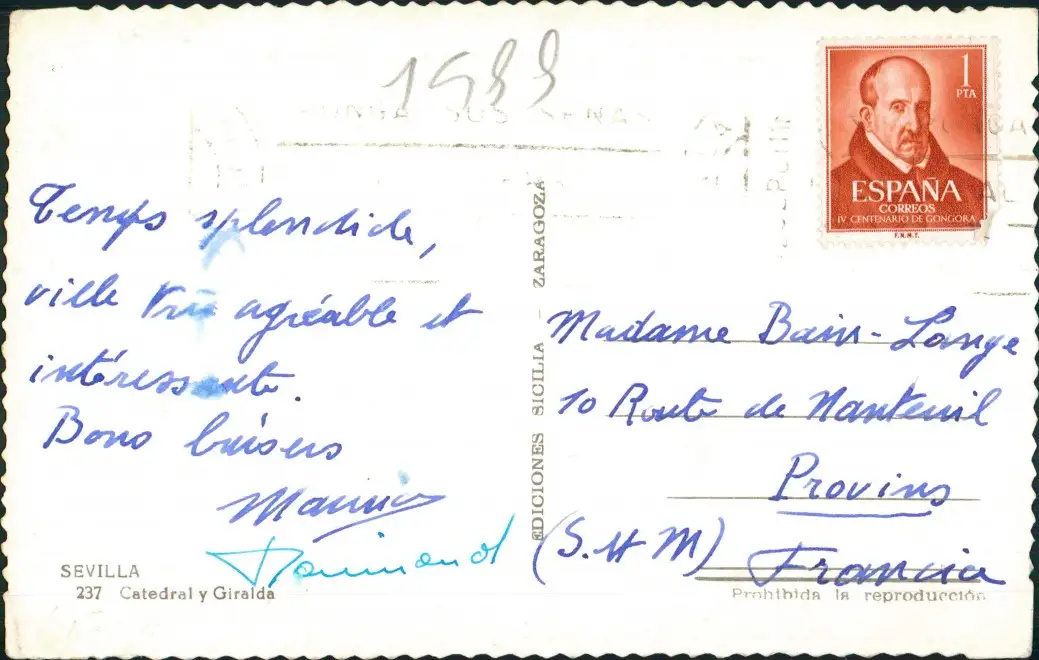 1 PTA
ESPAÑA
CORREOS
IV CENTENARIO DE GONGORA
F.N.M.T.
Temps splendide,
ville très agréable et
intéressante.
Bons baisers
Maurice
Raimond
SEVILLA
237 Catedral y Giralda
EDICIONES SICILIA - ZARAGOZA
Madame Bain-Lange
10 Route de Nanteuil
Provins
(S. et M)
Francia
Prohibida la reproducción